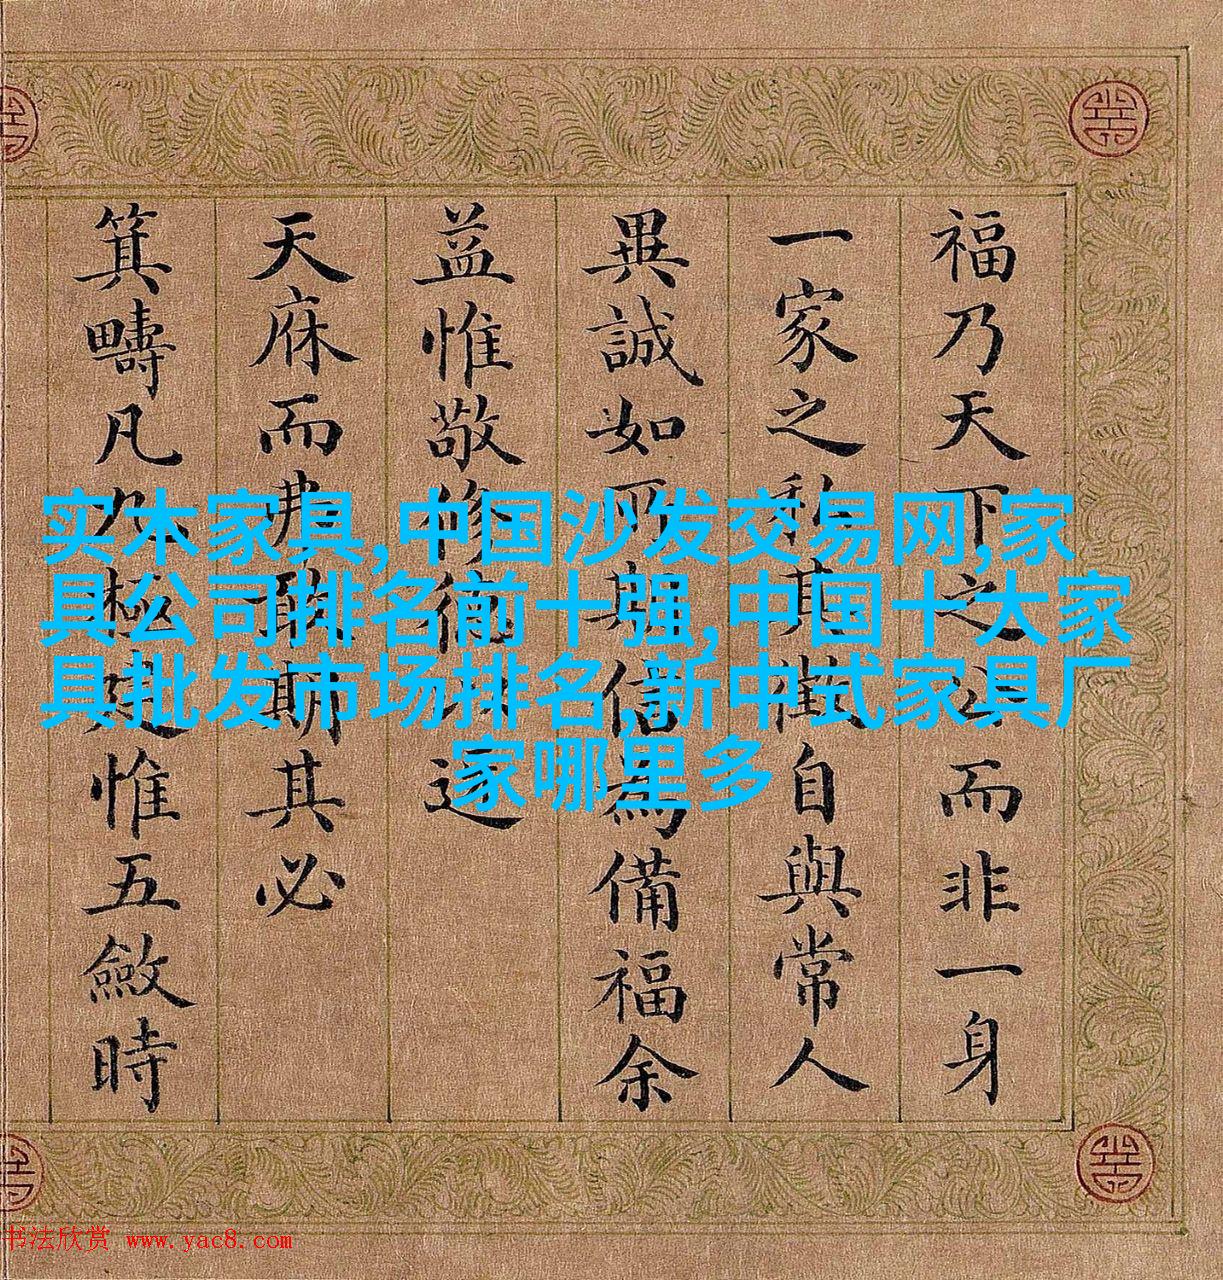 福乃天下之公而非一身
一家之私其自與常人
異誠如所期信為備福余
益惟敬修
天庥而弗敢期其必
箕疇凡九極建惟五斂時
实木家具,中国沙发交易网,家
具公司排名前十强,中国十大家
具批发市场排名,新中式家具厂
家哪里多
书法欣赏 www.yac8.com